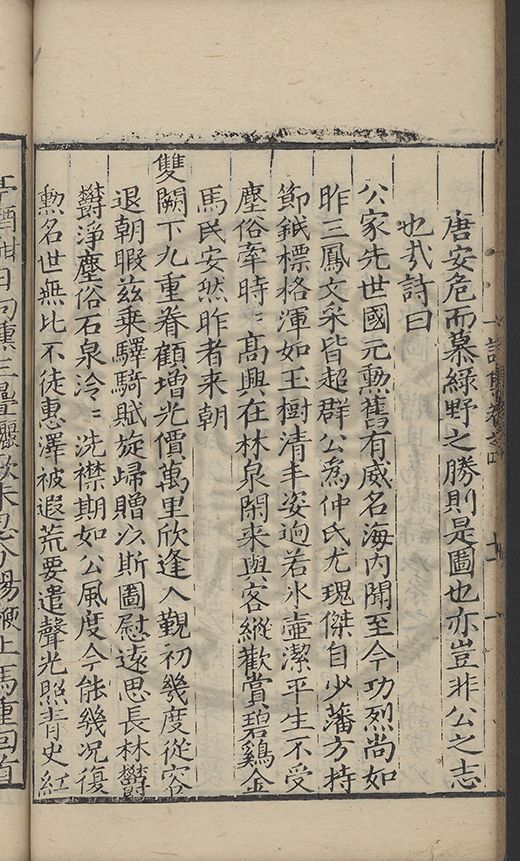 唐安危而慕綠野之勝則是圖也亦豈非公之志
也㢤詩曰
公家先世國元勲舊有威名海內聞至今功烈尚如
昨三鳳文采皆超群公爲仲氏尤瑰傑自少藩方持
節鉞標格渾如玉樹清丰姿逈若氷壺潔平生不受
塵俗牽時〻高興在林泉閑来與客縱歡賞碧鷄金
馬民安然昨者来朝
雙闕下九重眷顧增光價萬里欣逢入覲初幾度從容
退朝暇兹乗驛騎賦旋歸贈以斯圖慰逺思長林欝
欝淨塵俗石泉泠〻洗襟期如公風度今能幾况復
勲名世無比不徒惠澤被遐荒要遣聲光照青史紅
亭酒酣日向
馬重回首
詩集卷之四
十一